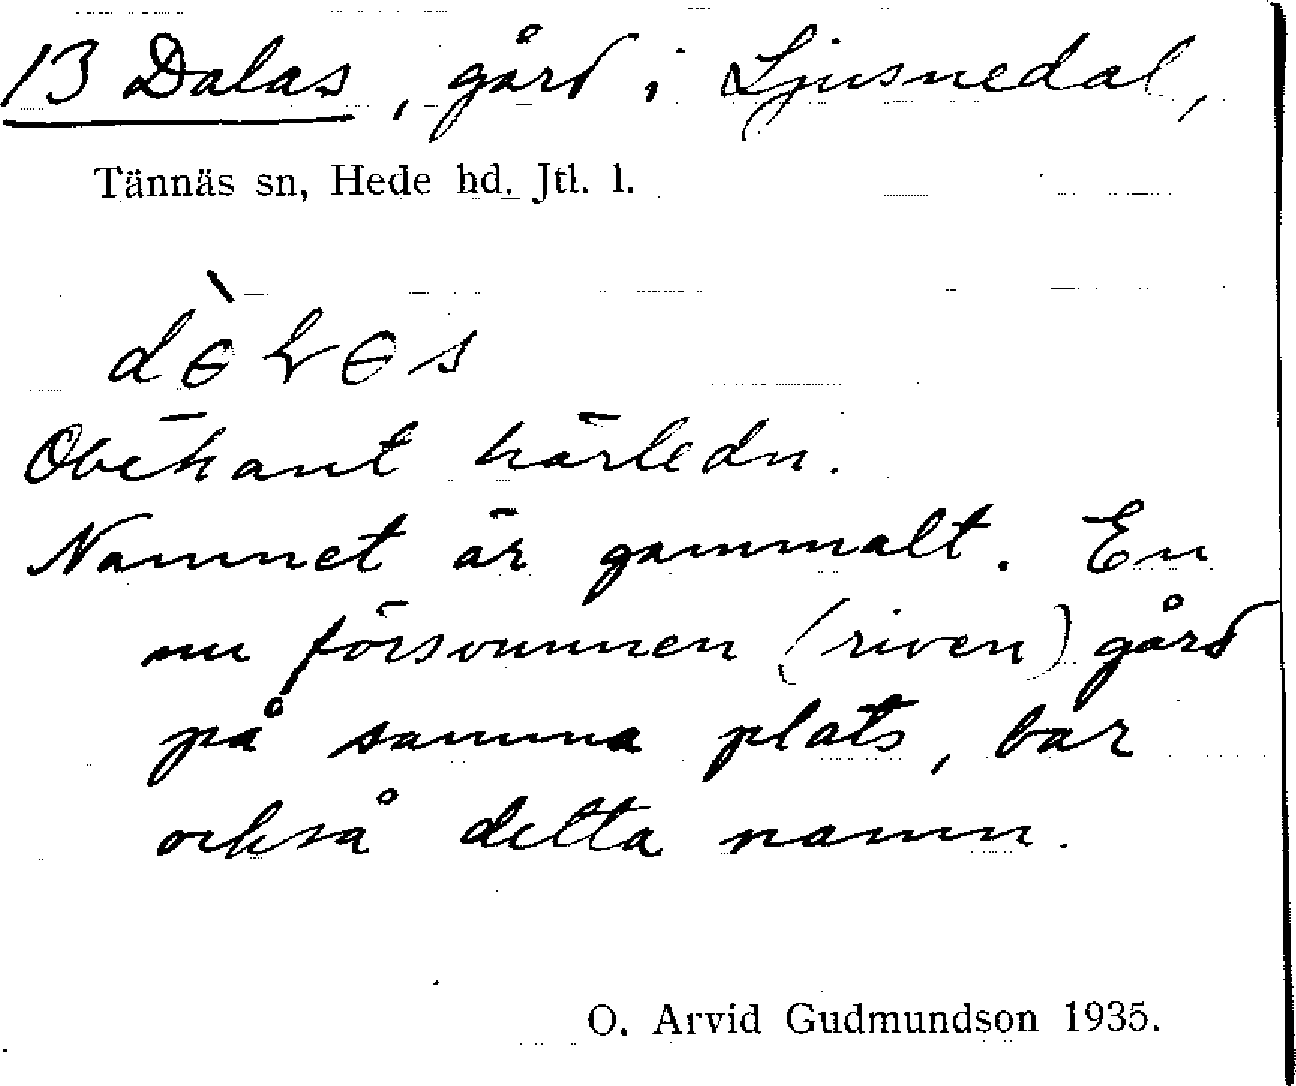 13 Dalas, gård i Ljusnedal,
Tännäs sn, Hede hd. Jtl. l.
Obekant härledn.
Namnet är gammalt. En
nu försvunnen (riven) gård
på samma plats, bar
också detta namn.
O. Arvid Gudmundson 1935.